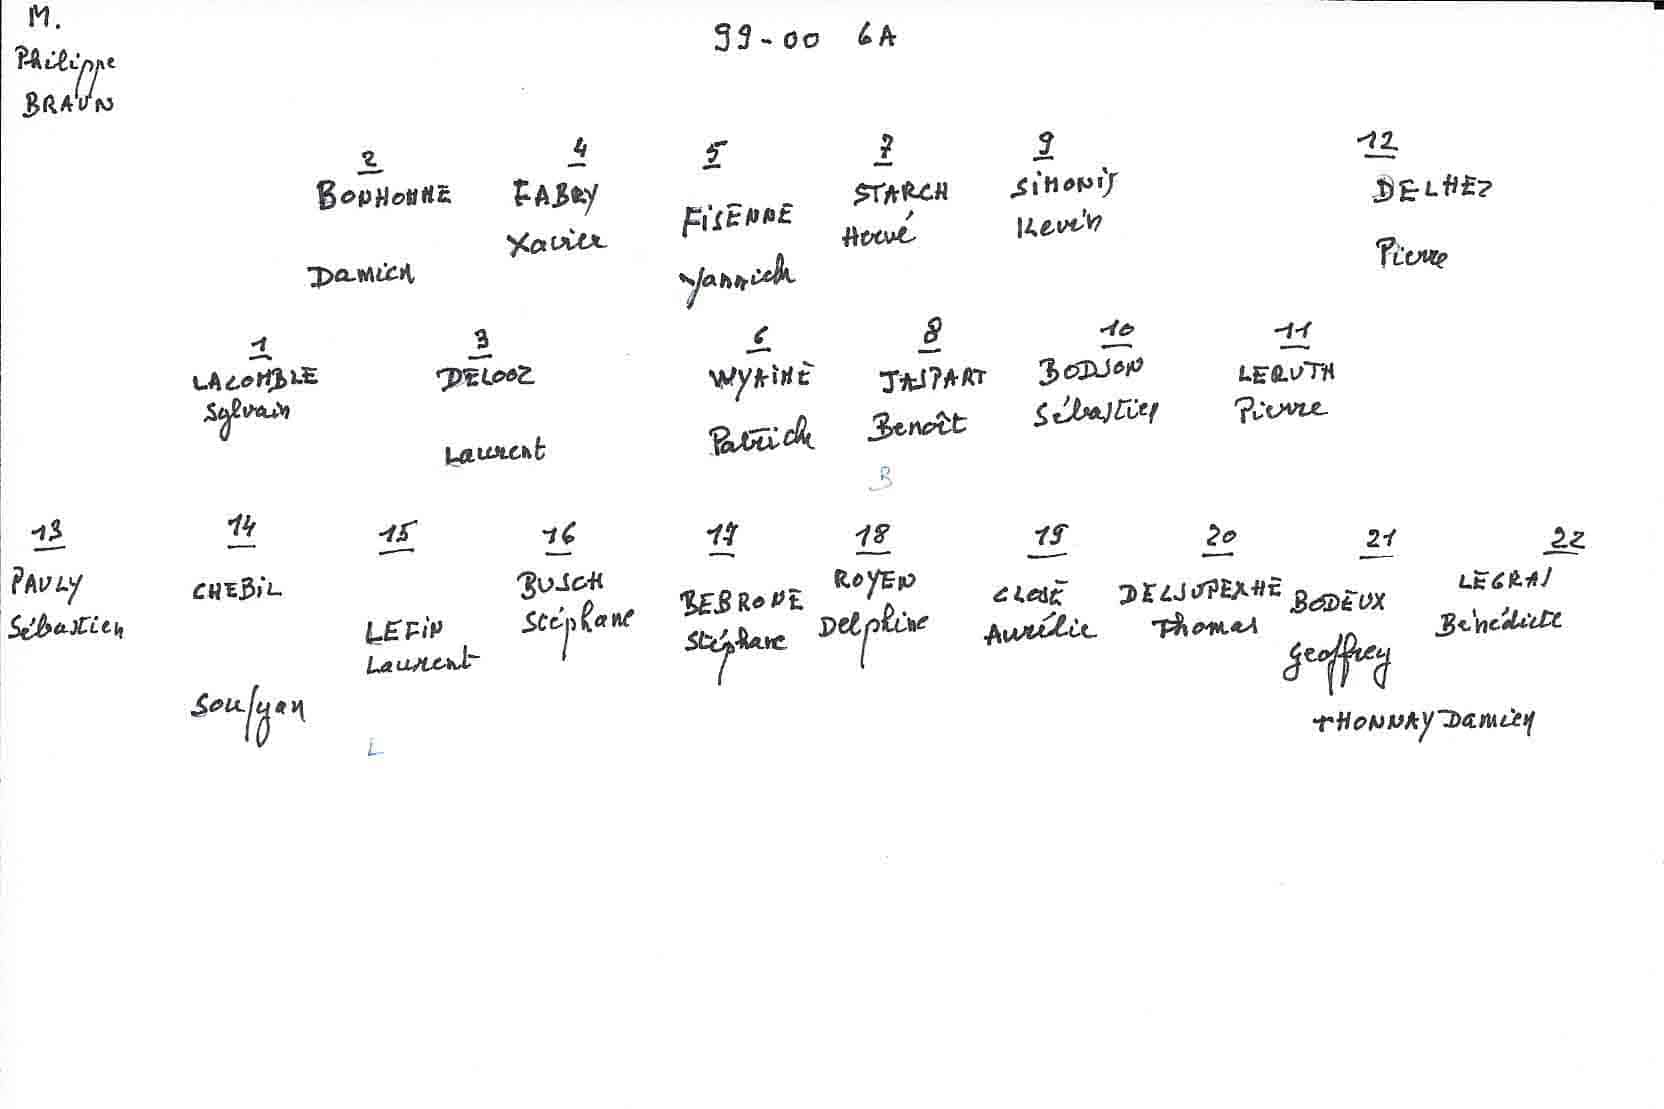 M.
Philippe
BRAUN
99-00 6A
2 4 5 7 9 12
BONHOMME FABRY FISENNE STARCK SIMONIS DELHEZ
Damien Xavier Yannick Hervé Kevin Pierre
1 3 6 8 10 11
LACOMBLE DELOOZ JASPART BODSON LERUTH
Sylvain Laurent Patrick Benoît Sébastien Pierre
B
13 14 15 16 17 18 19 20 21 22
PAULY CHEBIL LEFIN BUSCH BEBRONE ROYEN CLOSE DELSUPEXHE BODEUX LEGRAS
Sébastien Soufyan Laurent Stéphane Stéphane Delphine Aurélie Thomas Geoffrey Bénédicte
THONNAY Damien
L